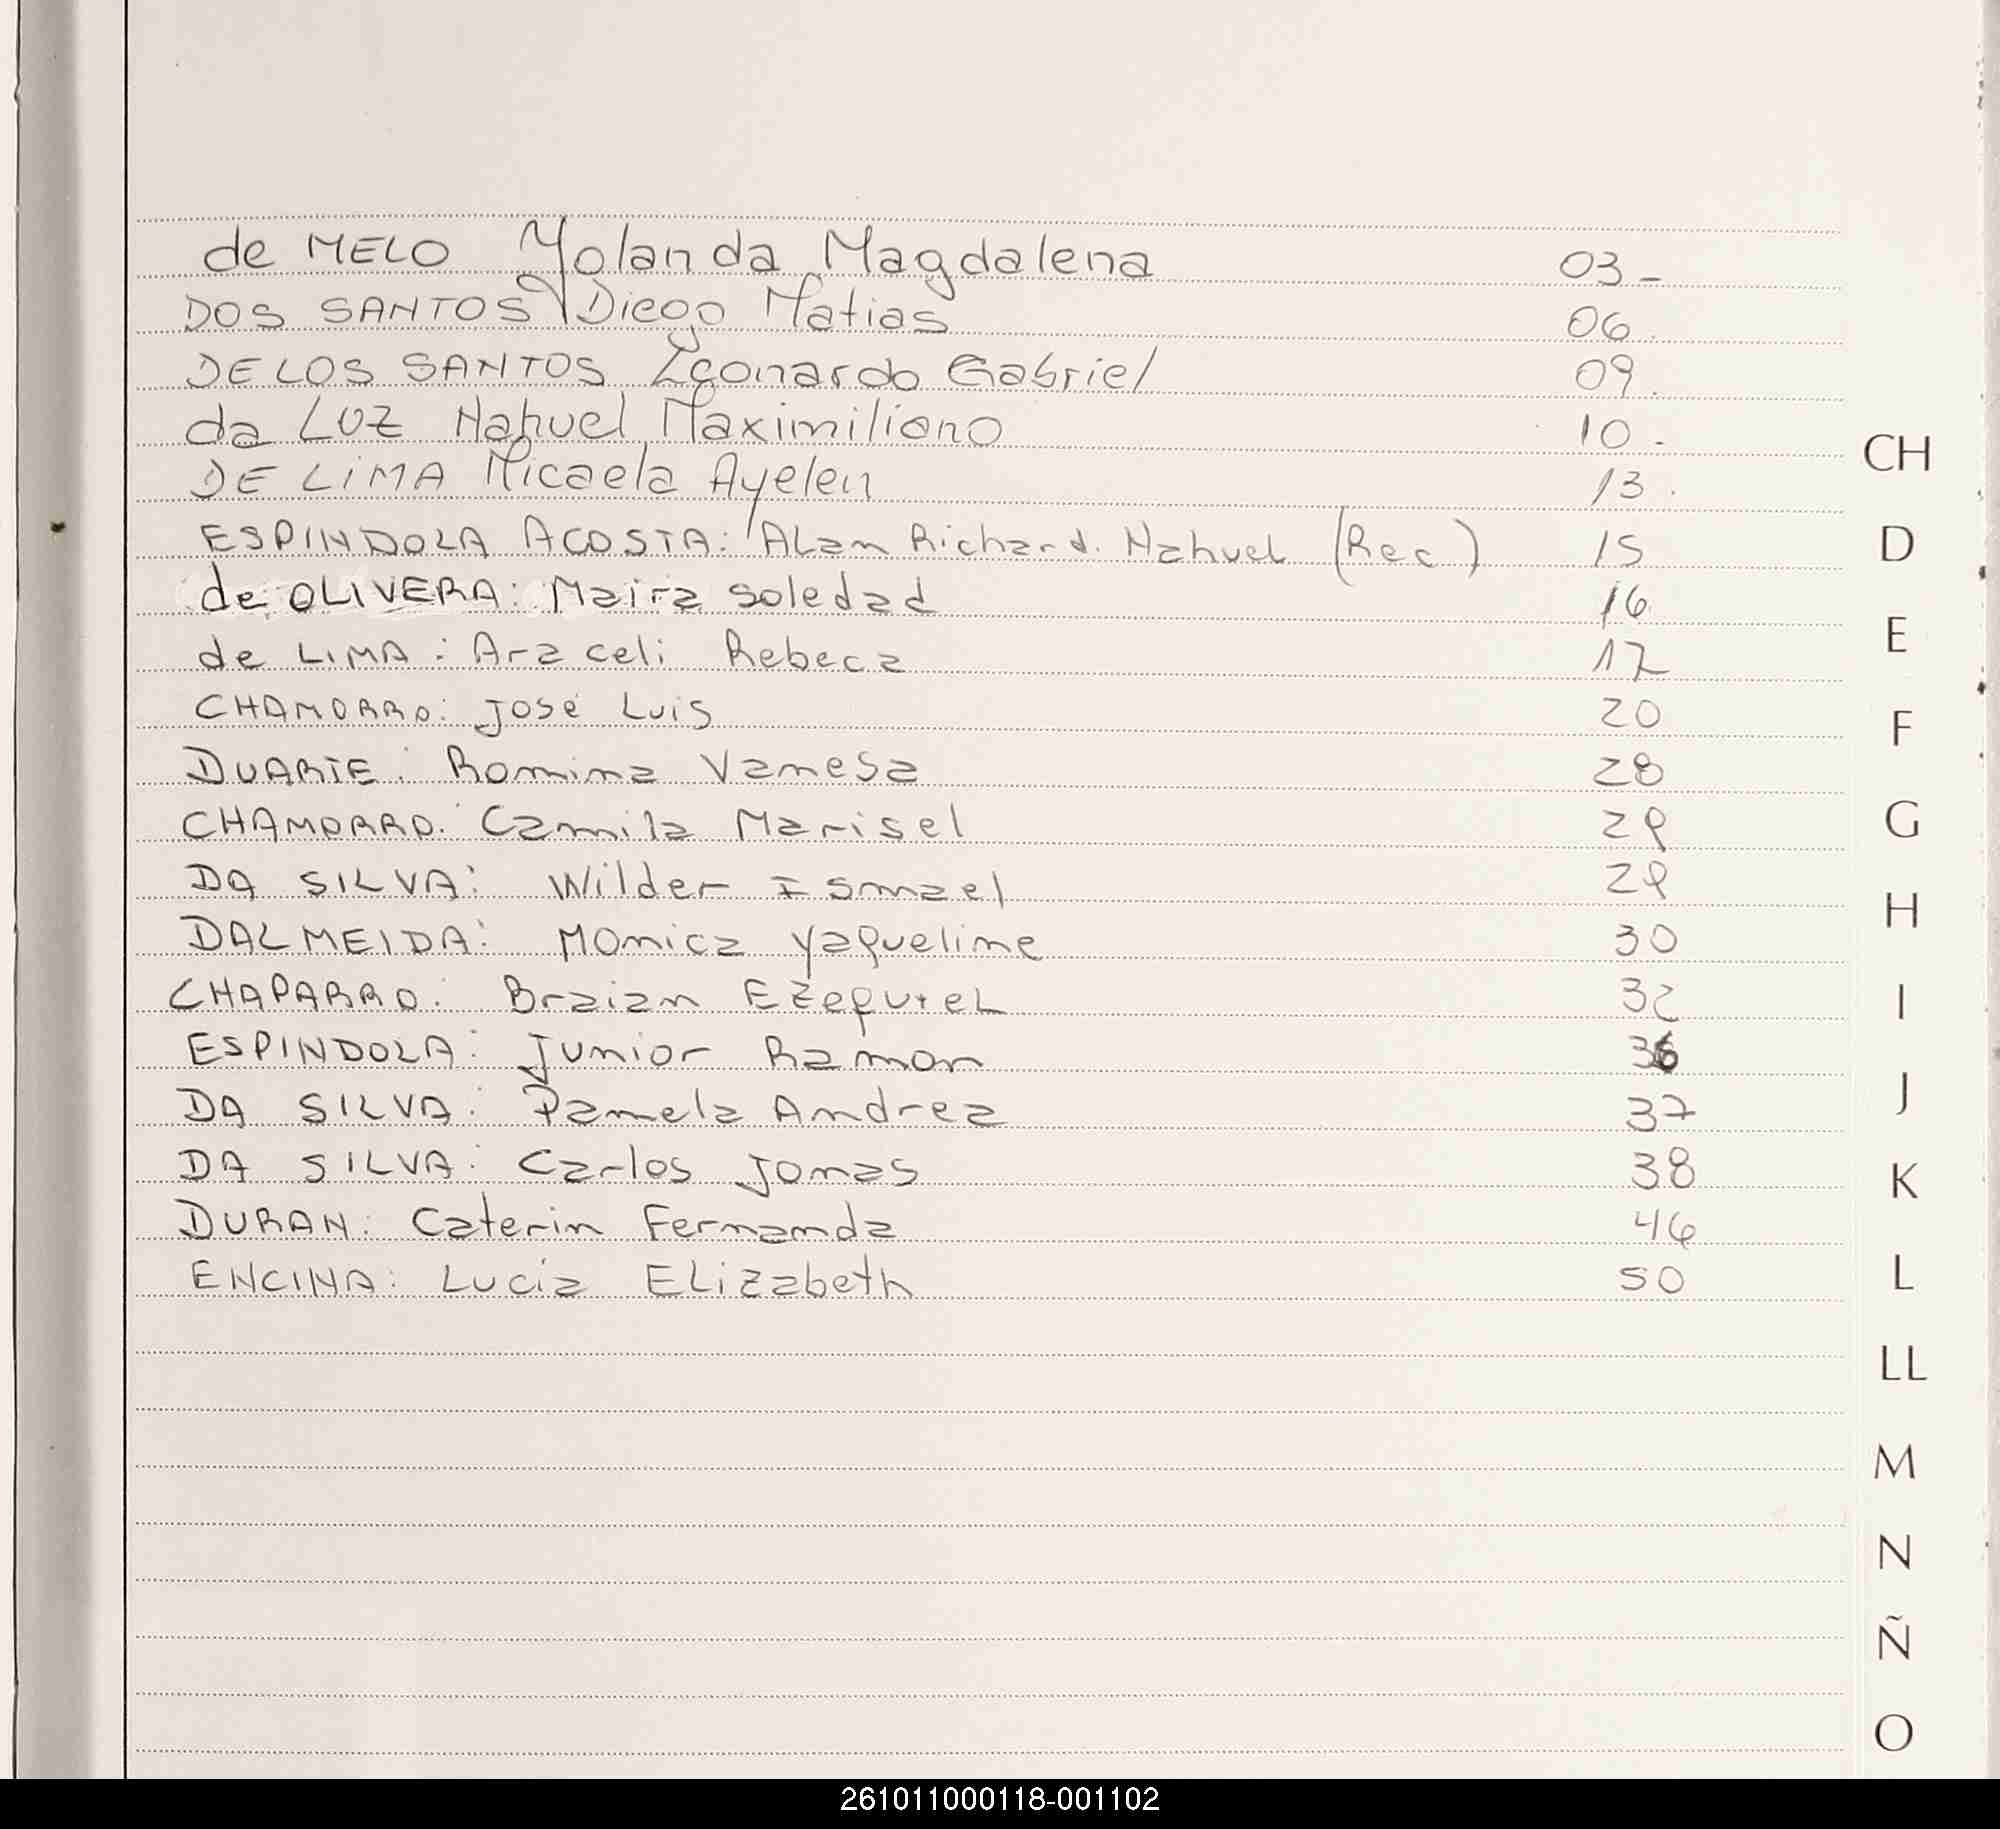 de MELO Yolanda Magdalena 03-
DOS SANTOS Diego Matias 06.
DE LOS SANTOS Leonardo Gabriel 09.
da LUZ Nahuel Maximiliano 10.-
DE LiMA Micaela Ayelen 13.
ESPINDOLA ACOSTA: ALan Richard. Nahuel (Rec) 15
de OLIVERA: Maira Soledad 16
de LIMA: Araceli Rebeca 17
CHAMORRO: José Luis 20
DUARTE: Romina Vanesa 28
CHAMORRO: Camila Marisel 29
DA SILVA: Wilder Ismael 29
DALMEIDA: Monica Yaqueline 30
CHAPARRO: Braian EzequieL 32
ESPINDOLA: Junior Ramon 36
DA SILVA: Pamela Andrea 37
DA SILVA: Carlos Jonas 38
DURAN: Caterin Fernanda 46
ENCINA: Lucia ELizabeth 50
CH
D
E
F
G
H
I
J
K
L
LL
M
N
Ñ
O
261011000118-001102